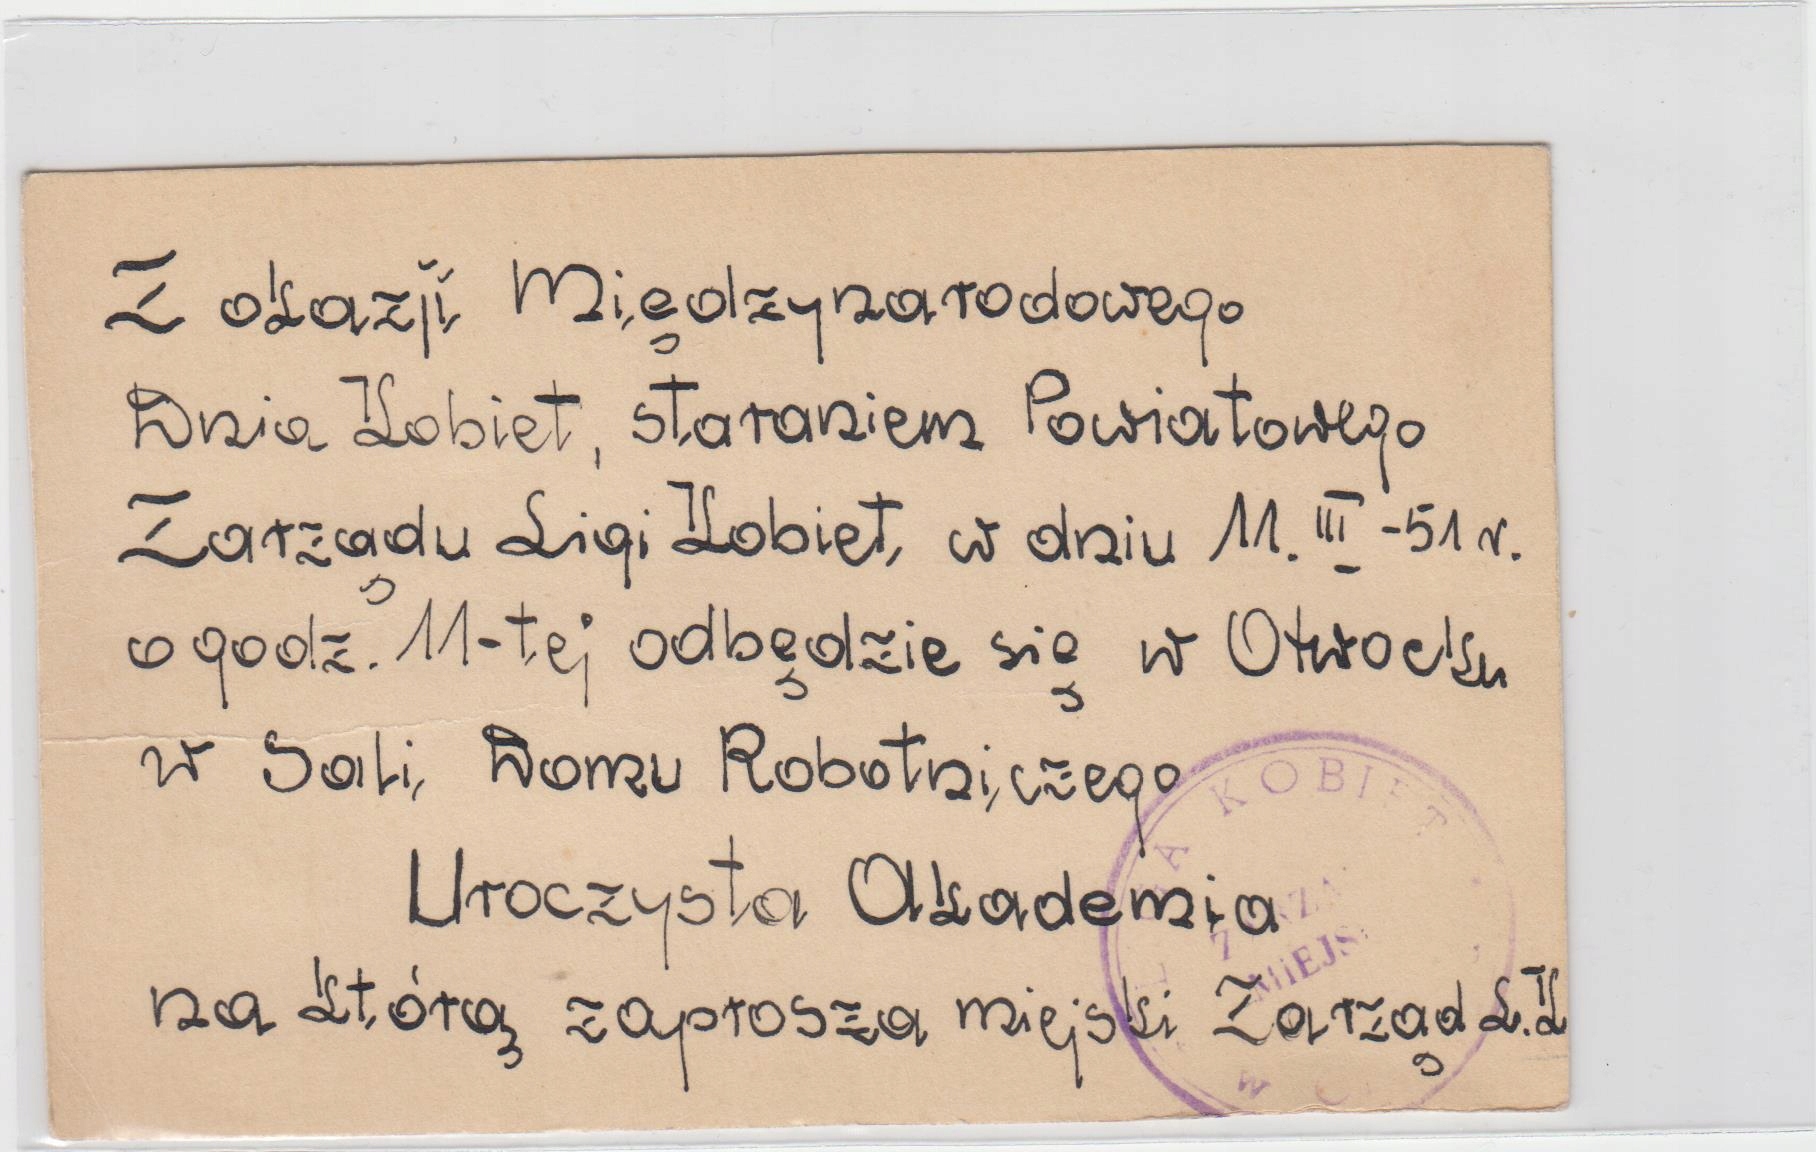 Z okazji Międzynarodowego
Dnia Kobiet, staraniem Powiatowego
Zarządu Ligi Kobiet, w dniu 11. III -51 r.
o godz. 11-tej odbędzie się w Otwocku
w Sali, Domu Robotniczego
Uroczysta Akademia
na którą zaprasza miejski Zarząd L.K
KOBIET
MIEJS
W